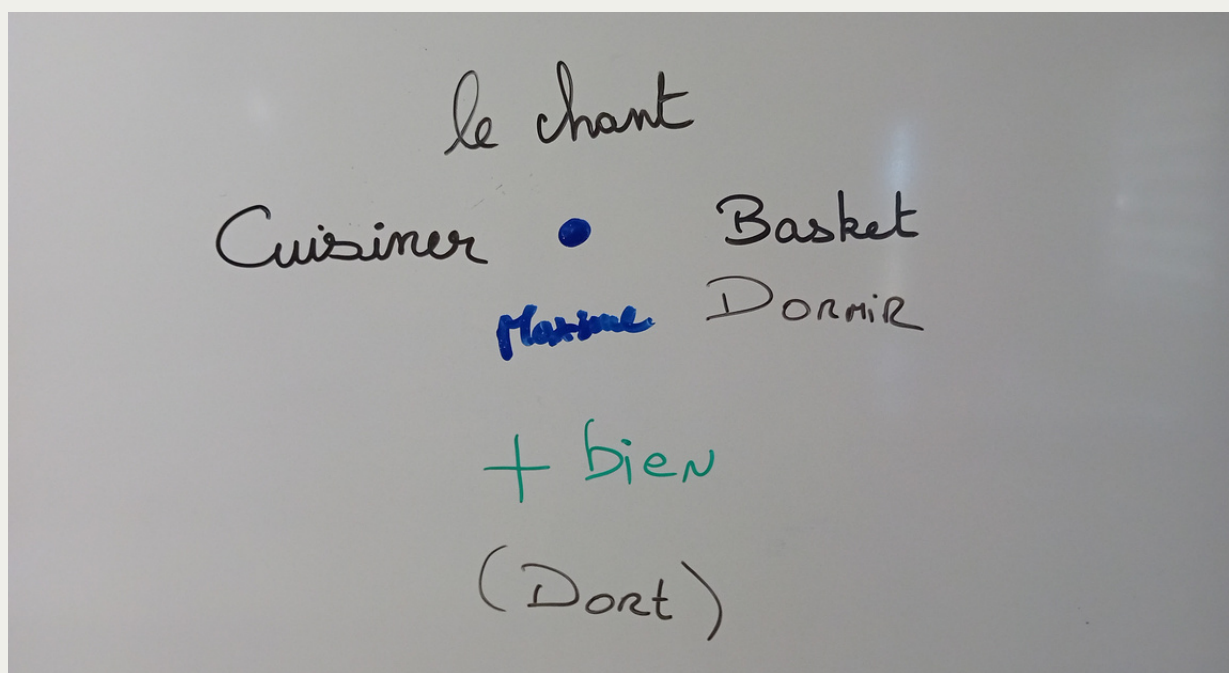 le chant
Cuisiner • Basket
Maxime DORMiR
+ bien
(Dort)